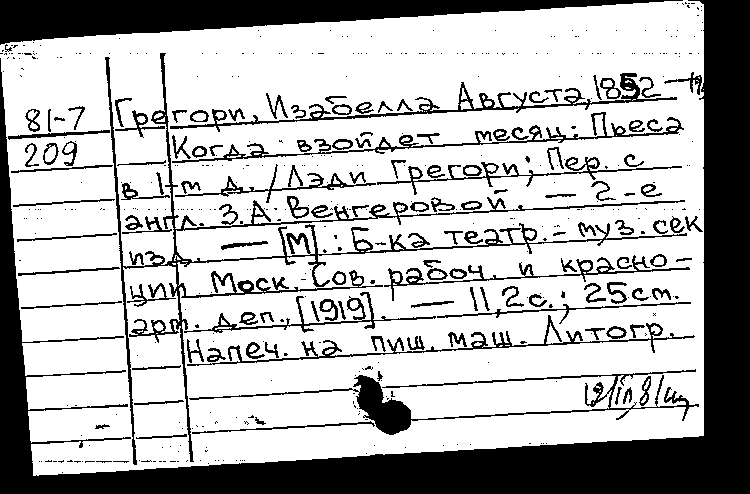 81-7
209
Грегори, Изабелла Августа, 1852 —
Когда взойдет месяц: Пьеса
в 1-м д. / Лэди Грегори; Пер. с
англ. З.А. Венгеровой. — 2-е
изд. — [М].: Б-ка театр.-муз. сек
ции Моск. Сов. рабоч. и красно-
арм. деп., [1919]. — 11,2 с.; 25 см.
Напеч. на пиш. маш. Литогр.